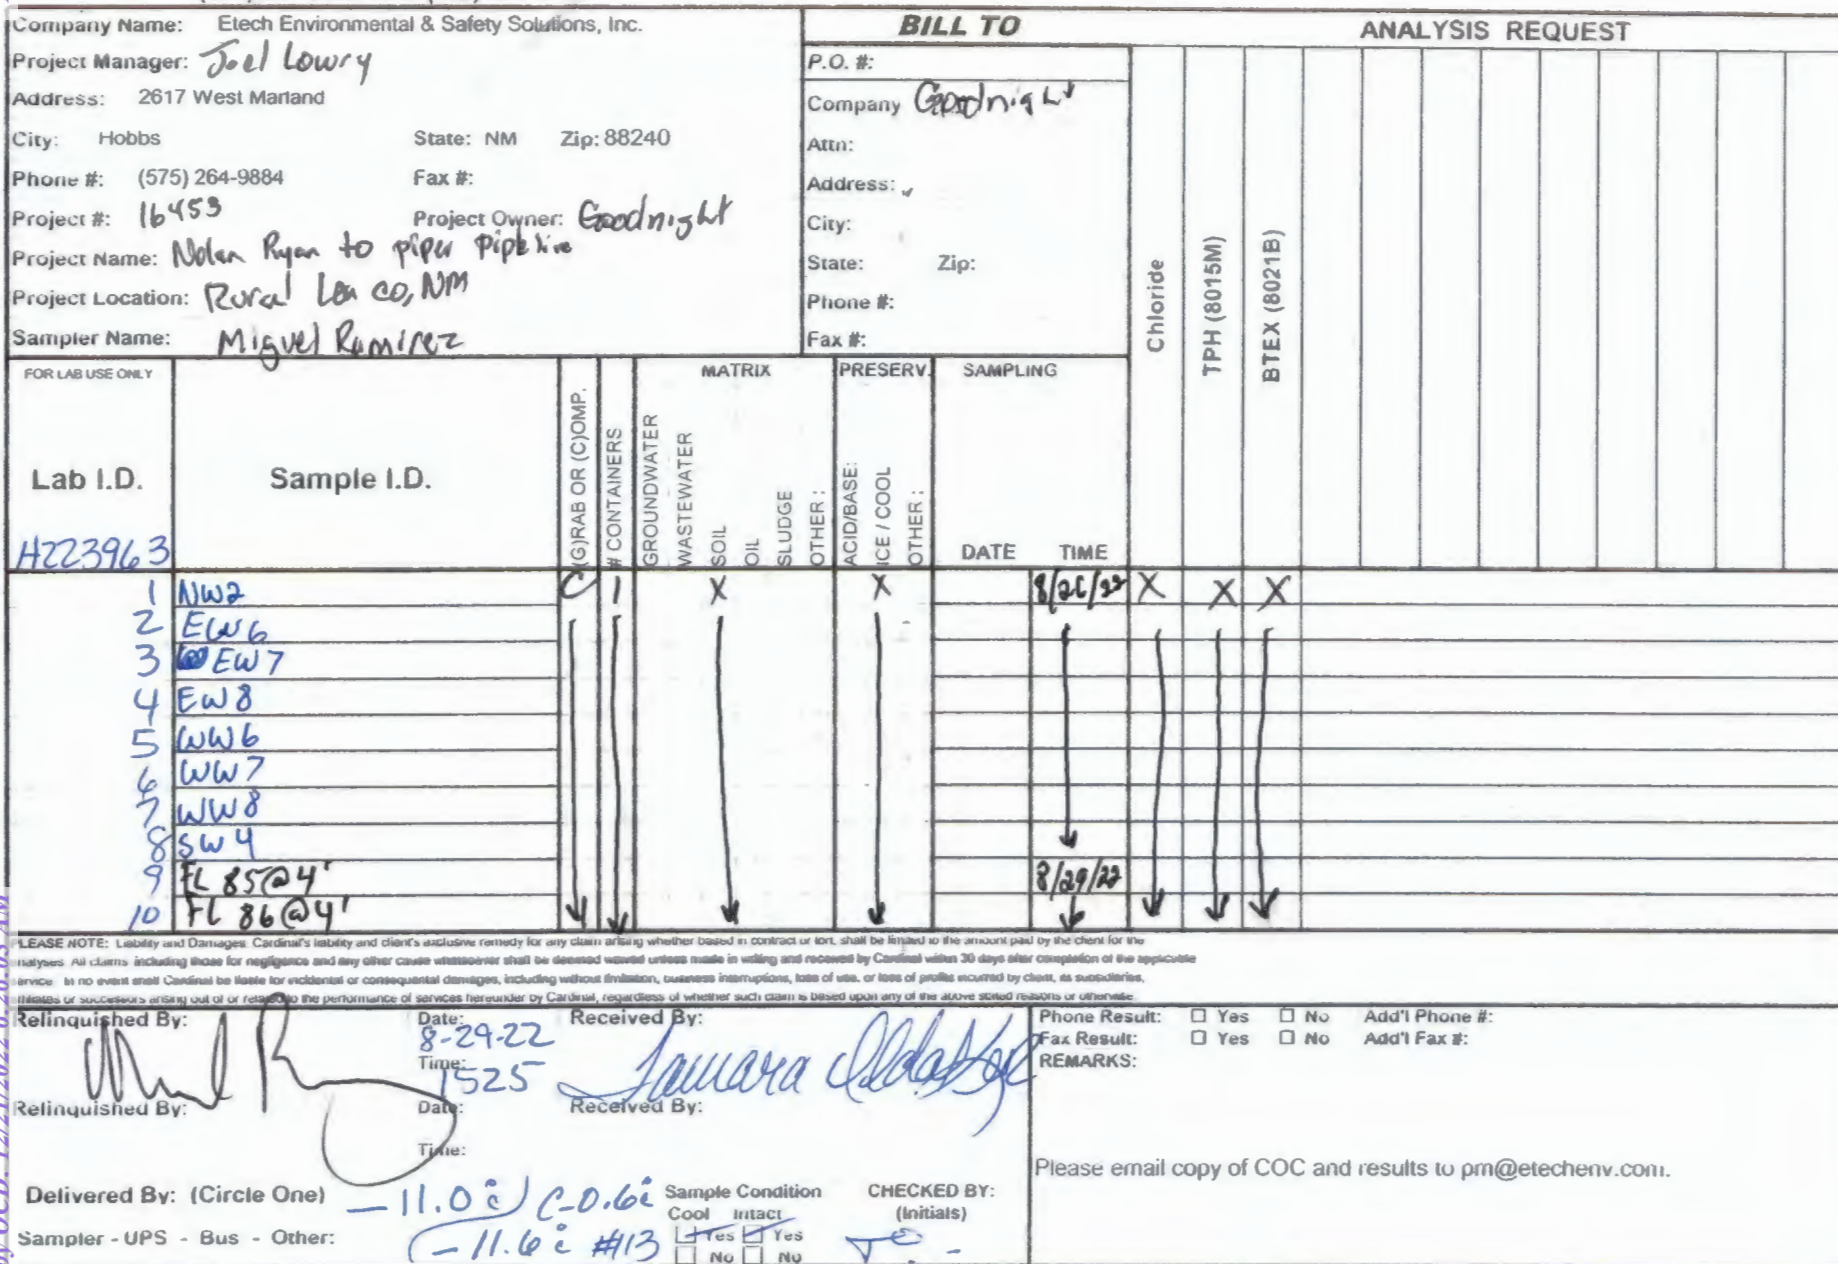 Company Name: Etech Environmental & Safety Solutions, Inc.
Project Manager: Joel Lowry
Address: 2617 West Marland
City: Hobbs State: NM Zip: 88240
Phone #: (575) 264-9884 Fax #:
Project #: 16453 Project Owner: Goodnight
Project Name: Nolan Ryan to piper pipeline
Project Location: Rural Lea co, NM
Sampler Name: Miguel Ramirez
BILL TO
P.O. #:
Company Goodnight
Attn:
Address:
City:
State: Zip:
Phone #:
Fax #:
ANALYSIS REQUEST
Chloride
TPH (8015M)
BTEX (8021B)
FOR LAB USE ONLY
Lab I.D.
H223963
Sample I.D.
(G)RAB OR (C)OMP.
# CONTAINERS
MATRIX
GROUNDWATER
WASTEWATER
SOIL
OIL
SLUDGE
OTHER :
PRESERV.
ACID/BASE:
ICE / COOL
OTHER :
SAMPLING
DATE TIME
1 NW2 C 1 X X 8/26/22 X X X
2 EW6
3 EW7
4 EW8
5 WW6
6 WW7
7 WW8
8 SW4
9 FL 85@4' 8/29/22
10 FL 86@4'
PLEASE NOTE: Liability and Damages. Cardinal's liability and client's exclusive remedy for any claim arising whether based in contract or tort, shall be limited to the amount paid by the client for the
analyses. All claims including those for negligence and any other cause whatsoever shall be deemed waived unless made in writing and received by Cardinal within 30 days after completion of the applicable
service. In no event shall Cardinal be liable for incidental or consequental damages, including without limitation, business interruptions, loss of use, or loss of profits incurred by client, its subsidiaries,
affiliates or successors arising out of or related to the performance of services hereunder by Cardinal, regardless of whether such claim is based upon any of the above stated reasons or otherwise.
Relinquished By: Date: 8-29-22 Received By: Tamara
Time: 1525
Relinquished By: Date: Received By:
Time:
Phone Result: Yes No Add'l Phone #:
Fax Result: Yes No Add'l Fax #:
REMARKS:
Please email copy of COC and results to pm@etechenv.com.
Delivered By: (Circle One)
Sampler - UPS - Bus - Other:
-11.0c C-0.6c
-11.6c #113
Sample Condition
Cool Intact
Yes Yes
No No
CHECKED BY:
(Initials)